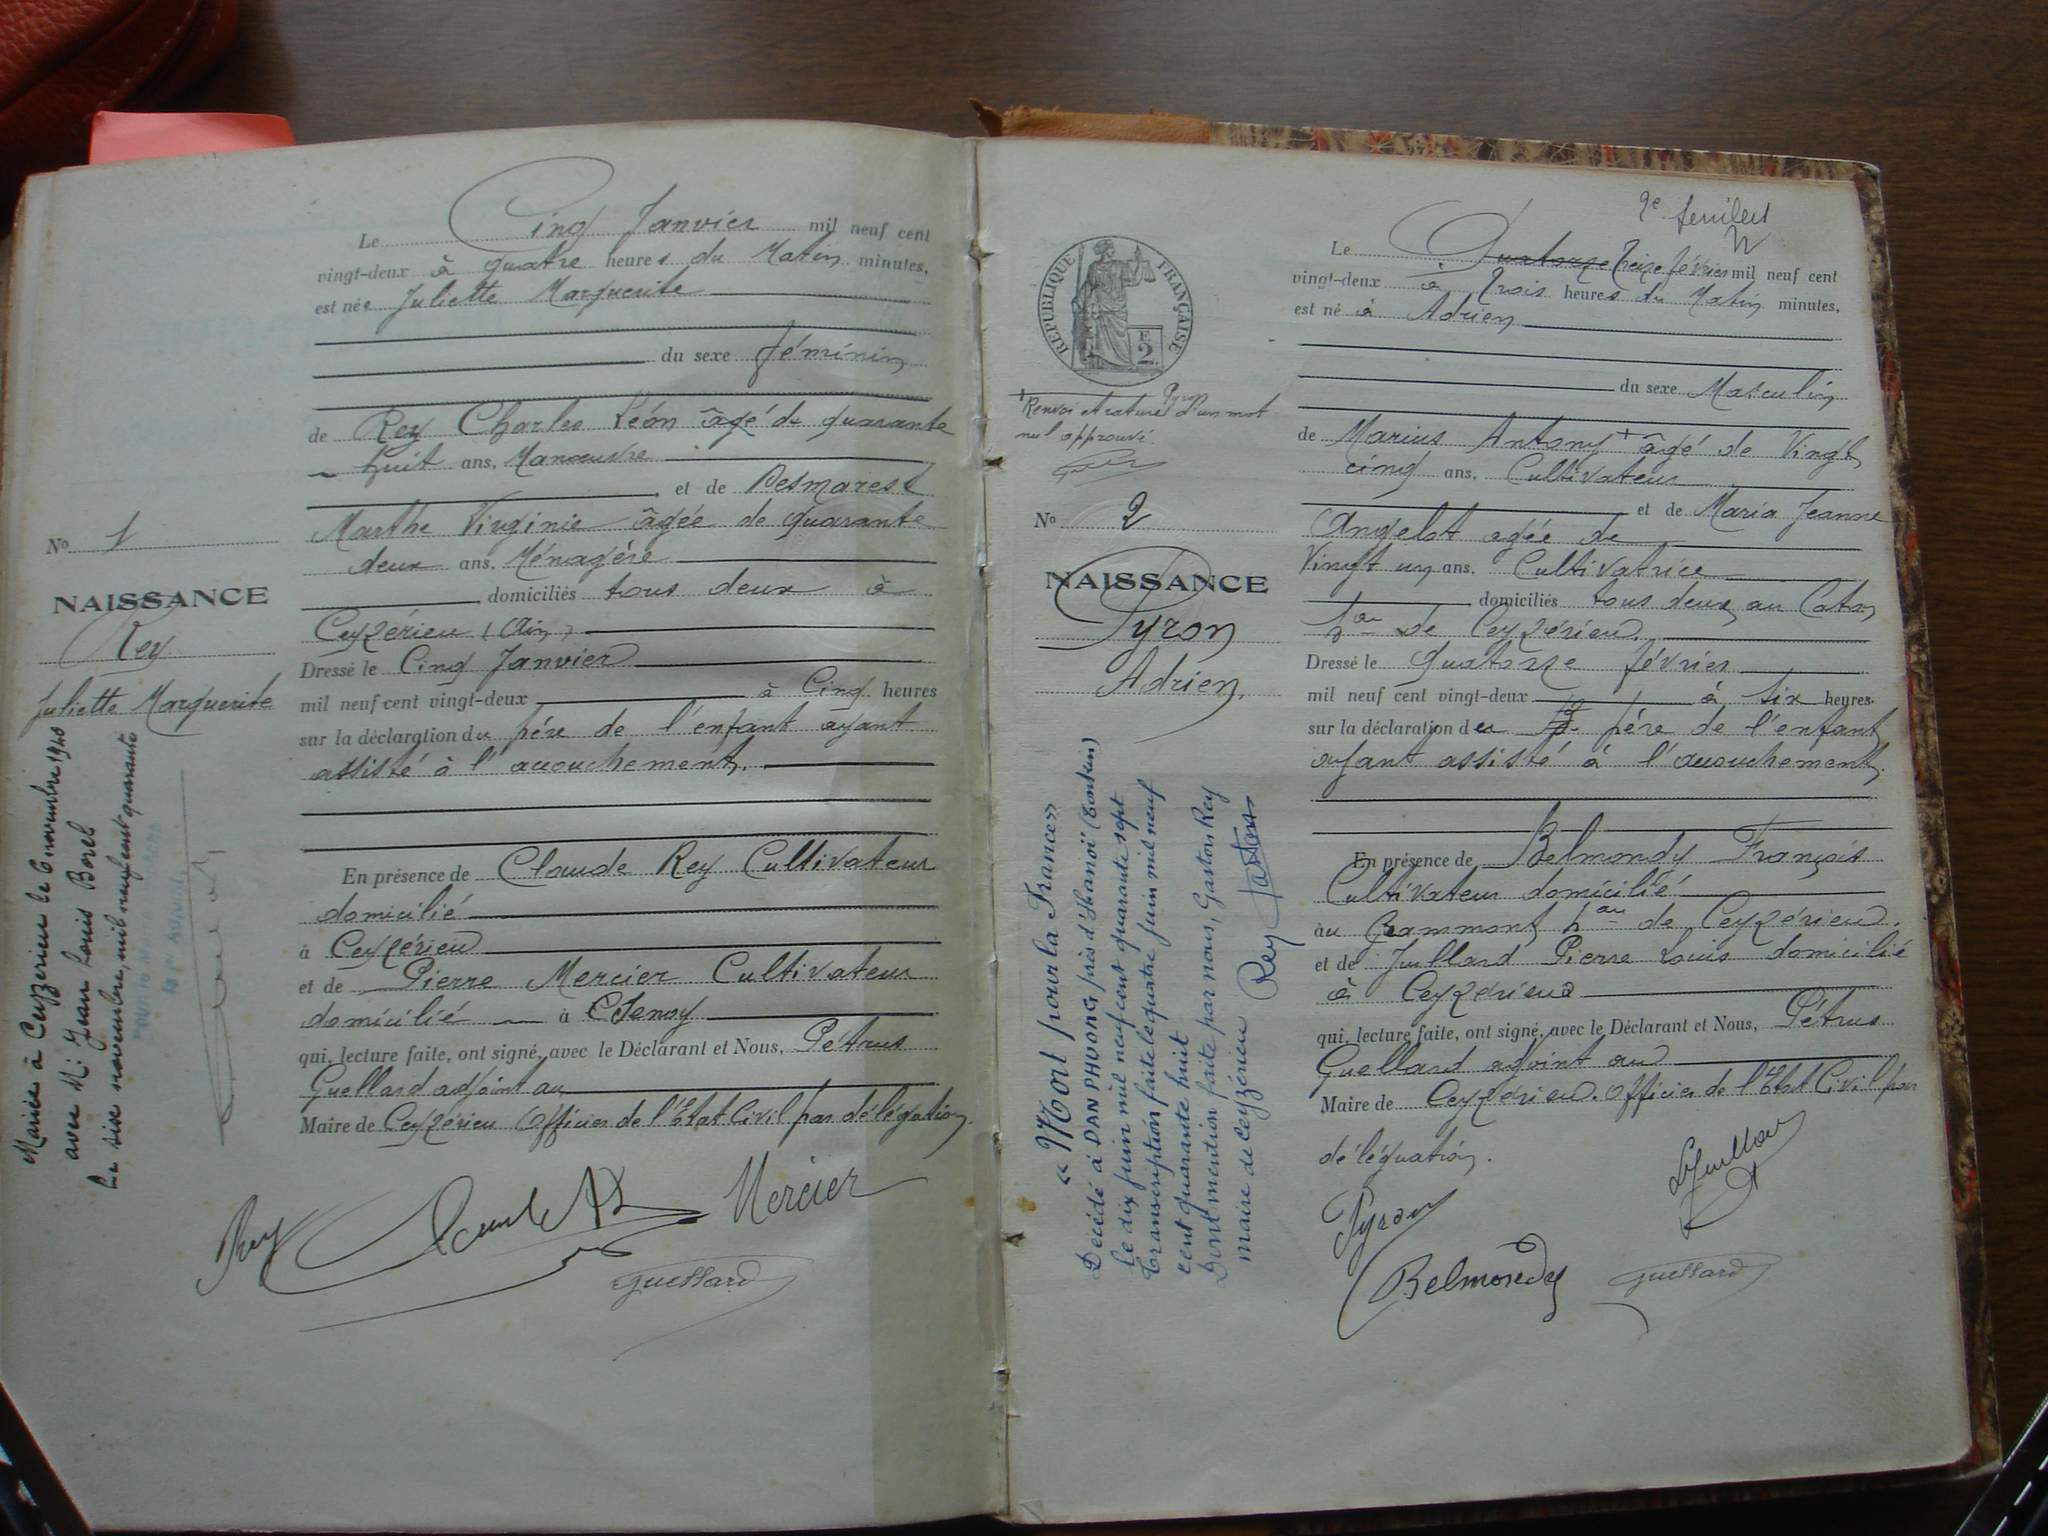 Le Cinq Janvier mil neuf cent
vingt-deux à quatre heures du Matin minutes,
est née Juliette Marguerite
du sexe féminin
de Rey Charles Léon âgé de quarante
huit ans, Manœuvre
et de Desmarest
Marthe Virginie âgée de quarante
deux ans, Ménagère
domiciliés tous deux à
Ceyzérieu (Ain)
Dressé le Cinq Janvier
mil neuf cent vingt-deux à Cinq heures
sur la déclaration du père de l'enfant ayant
assisté à l'accouchement.
En présence de Claude Rey Cultivateur
domicilié
à Ceyzérieu
et de Pierre Mercier Cultivateur
domicilié à
qui, lecture faite, ont signé avec le Déclarant et Nous, Pétrus
Guellard adjoint au
Maire de Ceyzérieu Officier de l'Etat Civil par délégation.
Rey
Mercier
Guellard
No 1
NAISSANCE
Rey
Juliette Marguerite
Mariée à Ceyzérieu le 6 novembre 1940
avec M. Jean Louis Borel
Le six novembre, mil neuf cent quarante
2e feuillet
RÉPUBLIQUE FRANÇAISE
F.
2
Renvoi et rature d'un mot
nul approuvé.
Pyron
No 2
NAISSANCE
Pyron
Adrien.
« Mort pour la France »
Décédé à DAN PHUONG près d'Hanoï (Tonkin)
le dix juin mil neuf cent quarante sept
Transcription faite le quatre juin mil neuf
cent quarante huit
Dont mention faite par nous, Gaston Rey
maire de Ceyzérieu Rey Gaston
Le Quatorze Treize février mil neuf cent
vingt-deux à Trois heures du Matin minutes,
est né à Adrien
du sexe Masculin
de Marius Antony + âgé de Vingt
cinq ans, Cultivateur
et de Maria Jeanne
Angelot agée de
Vingt un ans. Cultivatrice
domiciliés tous deux au Caton
hau de Ceyzérieu.
Dressé le quatorze février
mil neuf cent vingt-deux à six heures.
sur la déclaration du père de l'enfant
ayant assisté à l'accouchement.
En présence de Belmondy François
Cultivateur domicilié
au Grammont hau de Ceyzérieu.
et de Juillard Pierre Louis domicilié
à Ceyzérieu
qui, lecture faite, ont signé, avec le Déclarant et Nous, Pétrus
Guellard adjoint au
Maire de Ceyzérieu. Officier de l'Etat Civil par
délégation.
Pyron
Belmondy
Guellard